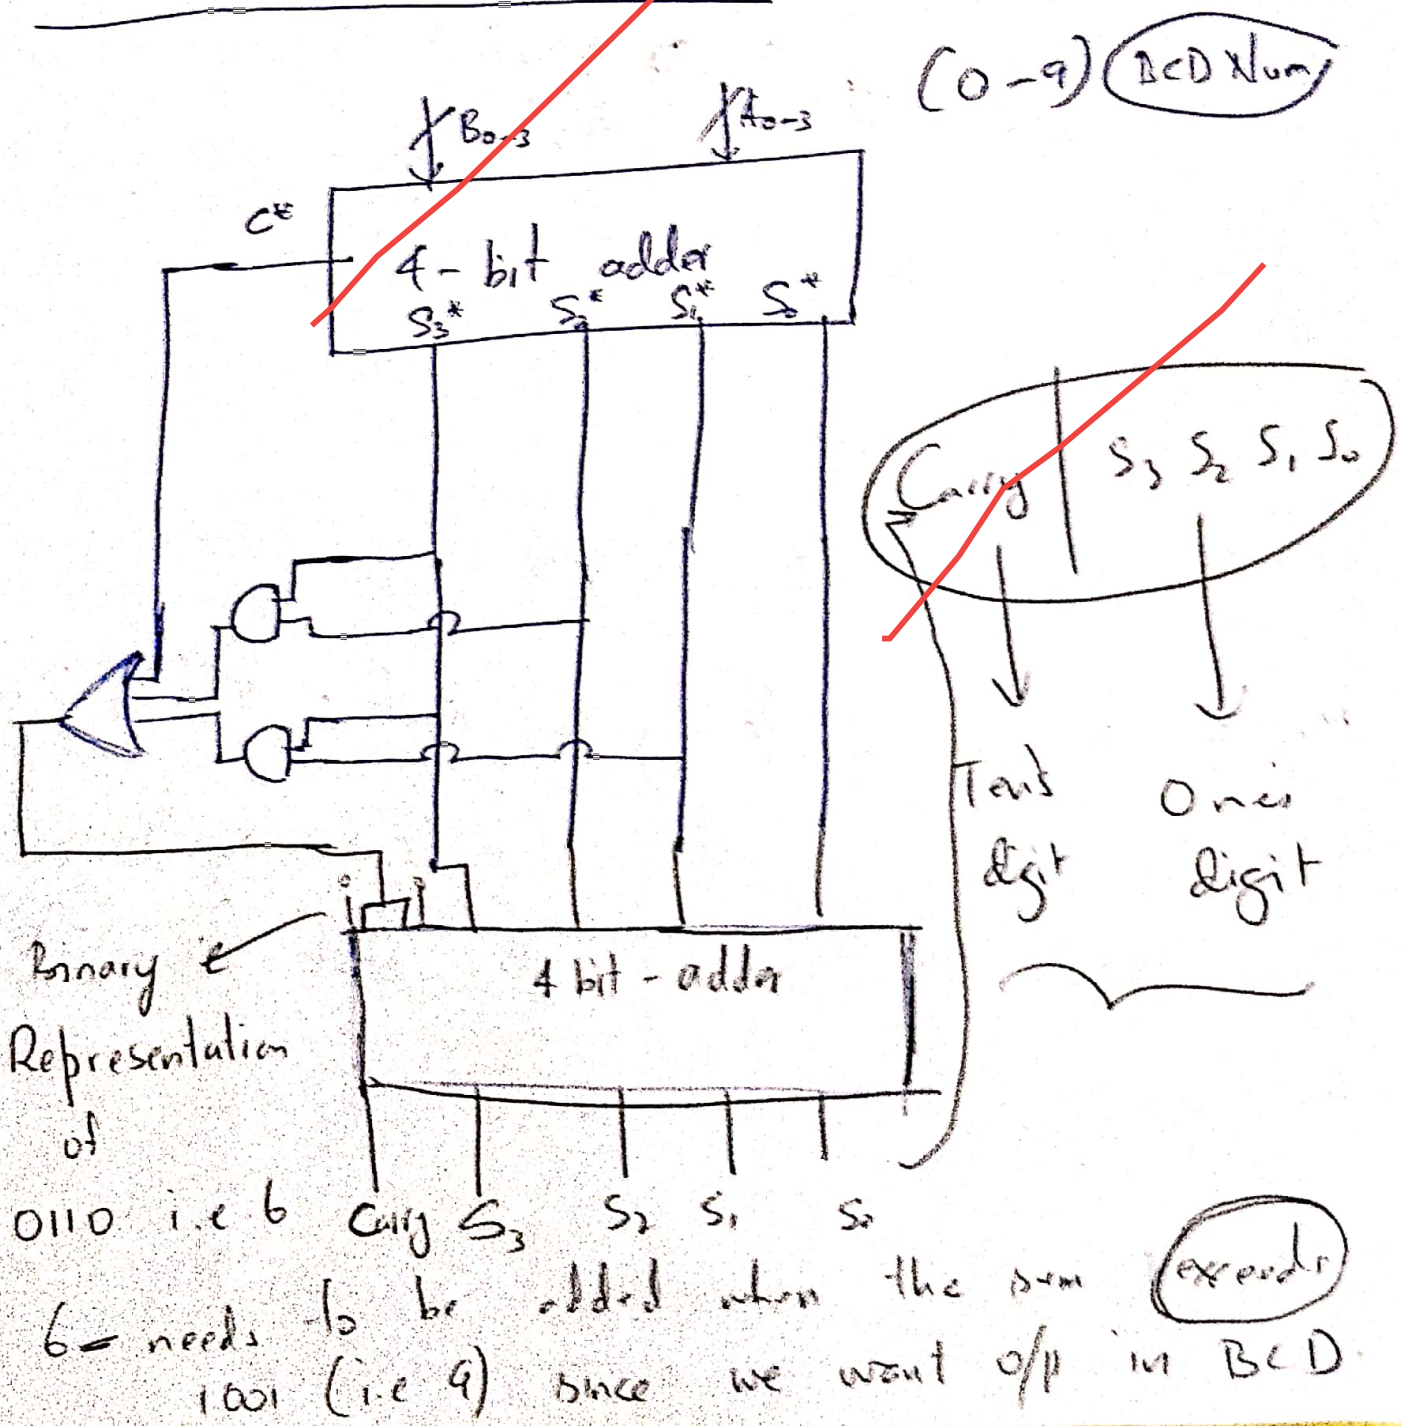 (0-9) BCD Num
B0-3 A0-3
C*
4-bit adder
S3* S2* S1* S0*
Carry | S3 S2 S1 S0
Ten's Ones
digit digit
0 0
Binary
Representation
of
0110 i.e 6
4 bit-adder
Carry S3 S2 S1 S0
6 needs to be added when the sum exceeds
1001 (i.e 9) since we want o/p in BCD